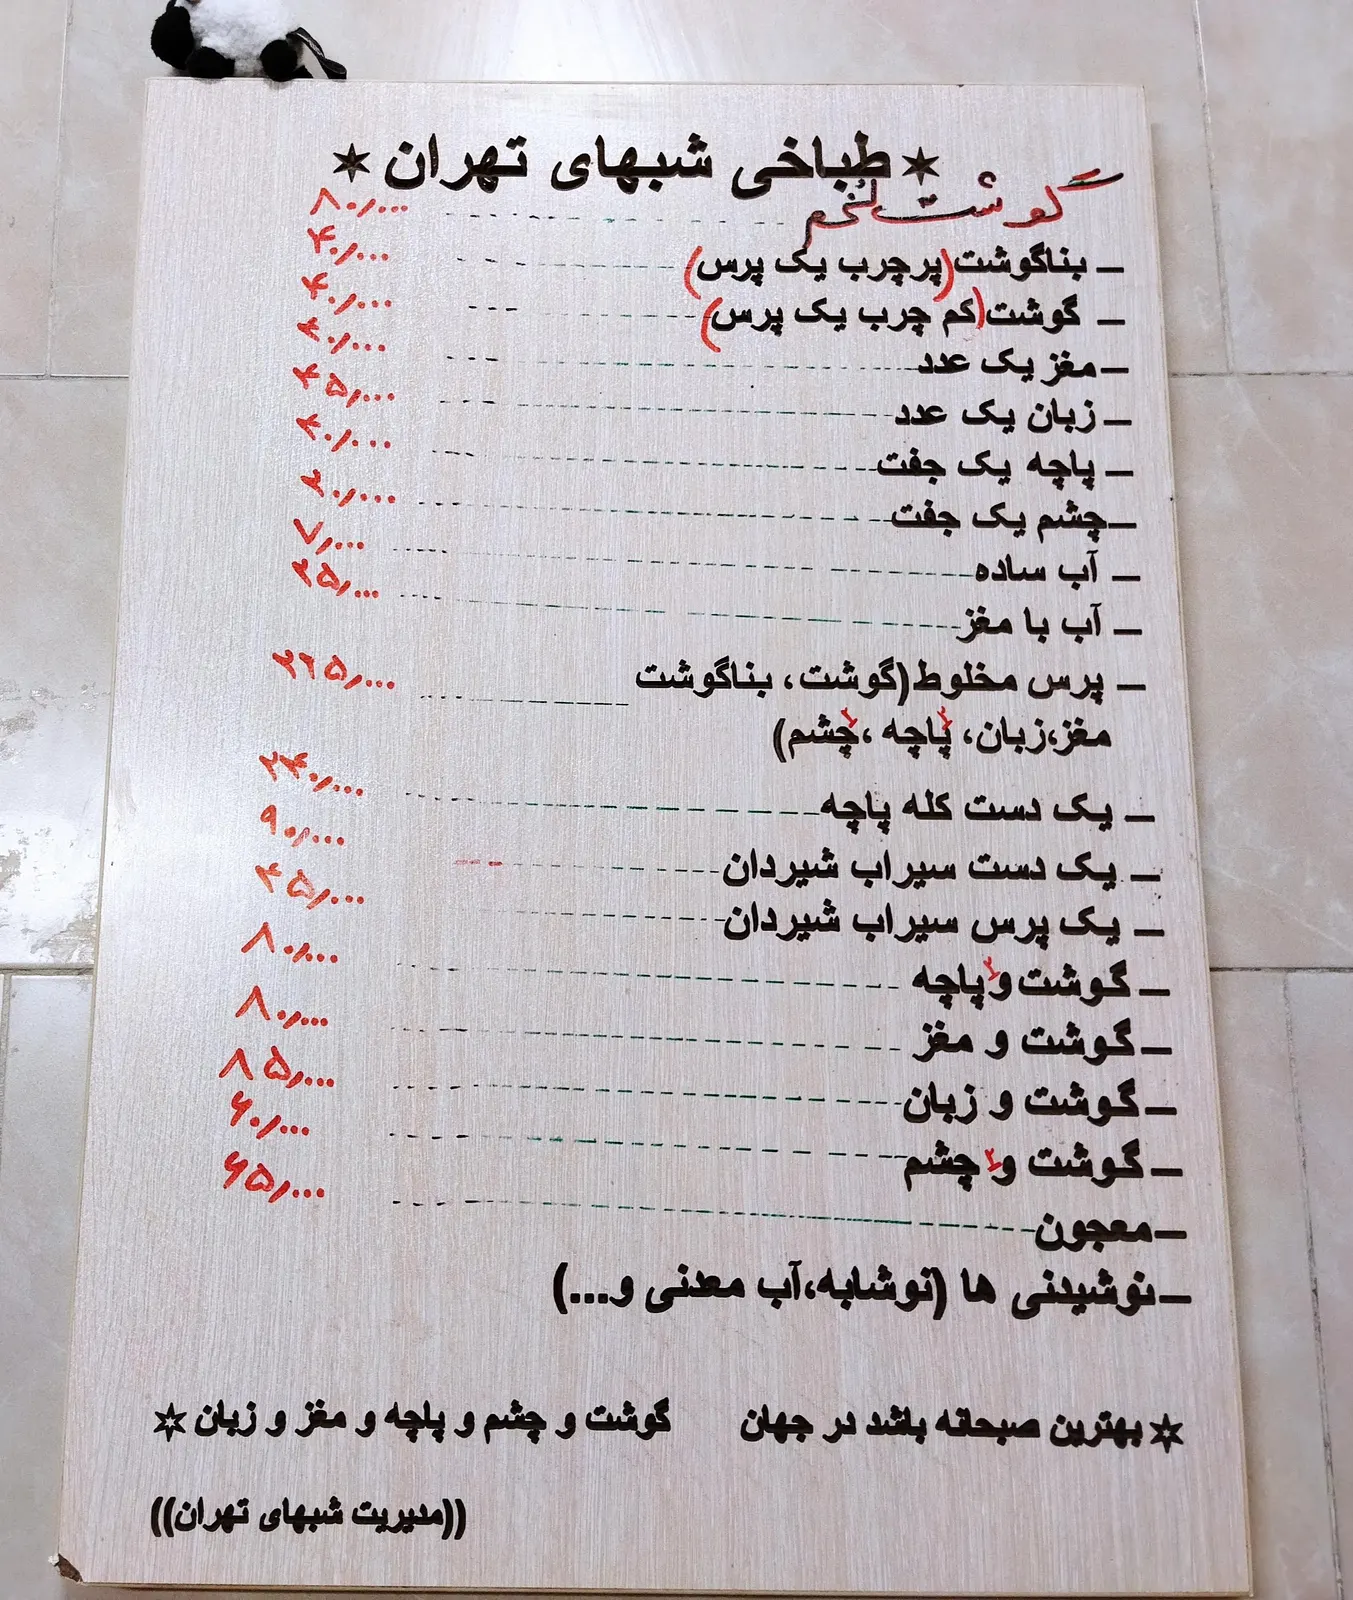 ✶ طباخی شبهای تهران ✶
گوشت لخم ۸۰/۰۰۰
– بناگوشت (پرچرب یک پرس) ۴۰/۰۰۰
– گوشت (کم چرب یک پرس) ۴۰/۰۰۰
– مغز یک عدد ۴۰/۰۰۰
– زبان یک عدد ۴۵/۰۰۰
– پاچه یک جفت ۴۰/۰۰۰
– چشم یک جفت ۲۰/۰۰۰
– آب ساده ۷/۰۰۰
– آب با مغز ۲۵/۰۰۰
– پرس مخلوط (گوشت، بناگوشت ۲۶۵/۰۰۰
مغز،زبان، ۲ پاچه ،۲ چشم)
– یک دست کله پاچه ۲۴۰/۰۰۰
– یک دست سیراب شیردان ۹۰/۰۰۰
– یک پرس سیراب شیردان ۴۵/۰۰۰
– گوشت و ۲ پاچه ۸۰/۰۰۰
– گوشت و مغز ۸۰/۰۰۰
– گوشت و زبان ۸۵/۰۰۰
– گوشت و ۲ چشم ۶۰/۰۰۰
– معجون ۶۵/۰۰۰
– نوشیدنی ها (نوشابه،آب معدنی و...)
✶ بهترین صبحانه باشد در جهان گوشت و چشم و پاچه و مغز و زبان ✶
((مدیریت شبهای تهران))